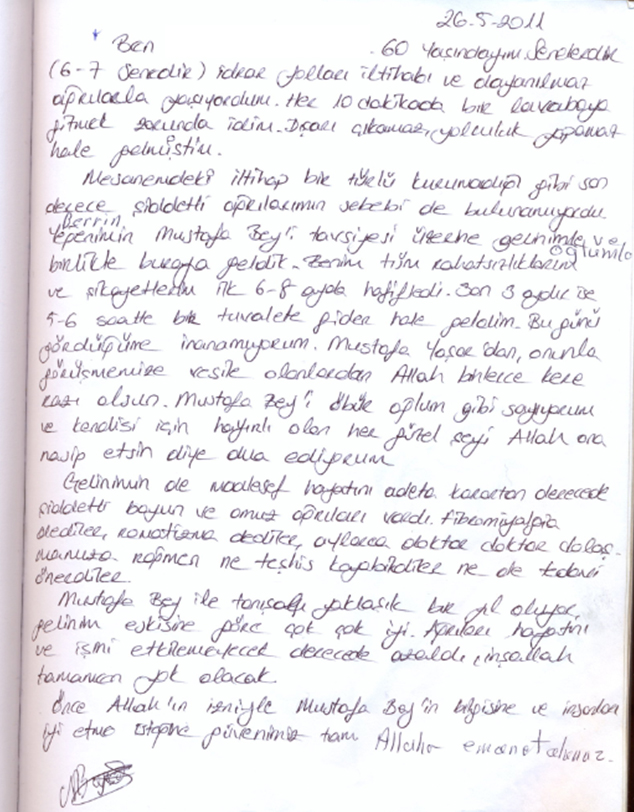 26.5-2011
Ben . 60 Yaşındayım. Senelerdir
(6-7 Senedir) idrar yolları iltihabı ve dayanılmaz
ağrılarla yaşıyordum. Her 10 dakikada bir lavaboya
gitmek zorunda idim. Dışarı çıkamaz, yolculuk yapamaz
hale gelmiştim.
Mesanemdeki iltihap bir türlü kurumadığı gibi son
derece şiddetli ağrılarımın sebebi de bulunamıyordu.
Berrin
Yeğenimin Mustafa Bey'i tavsiyesi üzerine gelinimle ve
oğlumla
birlikte buraya geldik. Benim tüm rahatsızlıklarım
ve şikayetlerim ilk 6-8 ayda hafifledi. Son 3 aydır ise
5-6 saatte bir tuvalete gider hale geldim. Bu günü
gördüğüme inanamıyorum. Mustafa Yaşar'dan, onunla
görüşmemize vesile olanlardan Allah binlerce kere
razı olsun. Mustafa Bey'i öbür oğlum gibi sayıyorum
ve kendisi için hayırlı olan her güzel şeyi Allah ona
nasip etsin diye dua ediyorum
Gelinimin de maalesef hayatını adeta karartan derecede
şiddetli boyun ve omuz ağrıları vardı. Fibromiyalgia
dediler, romatizma dediler, aylarca doktor doktor dolaş-
mamıza rağmen ne teşhis koyabildiler ne de tedavi
önerdiler.
Mustafa Bey ile tanışalı yaklaşık bir yıl oluyor,
gelinim eskisine göre çok çok iyi. Ağrıları hayatını
ve işini etkilemeyecek derecede azaldı, inşallah
tamamen yok olacak.
Önce Allah'ın izniyle Mustafa Bey'in bilgisine ve insanları
iyi etme isteğine güvenimiz tam Allaha emanet olunuz.